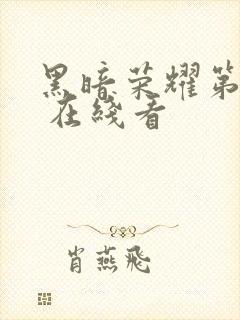 黑暗荣耀第
在线看
肖燕飛